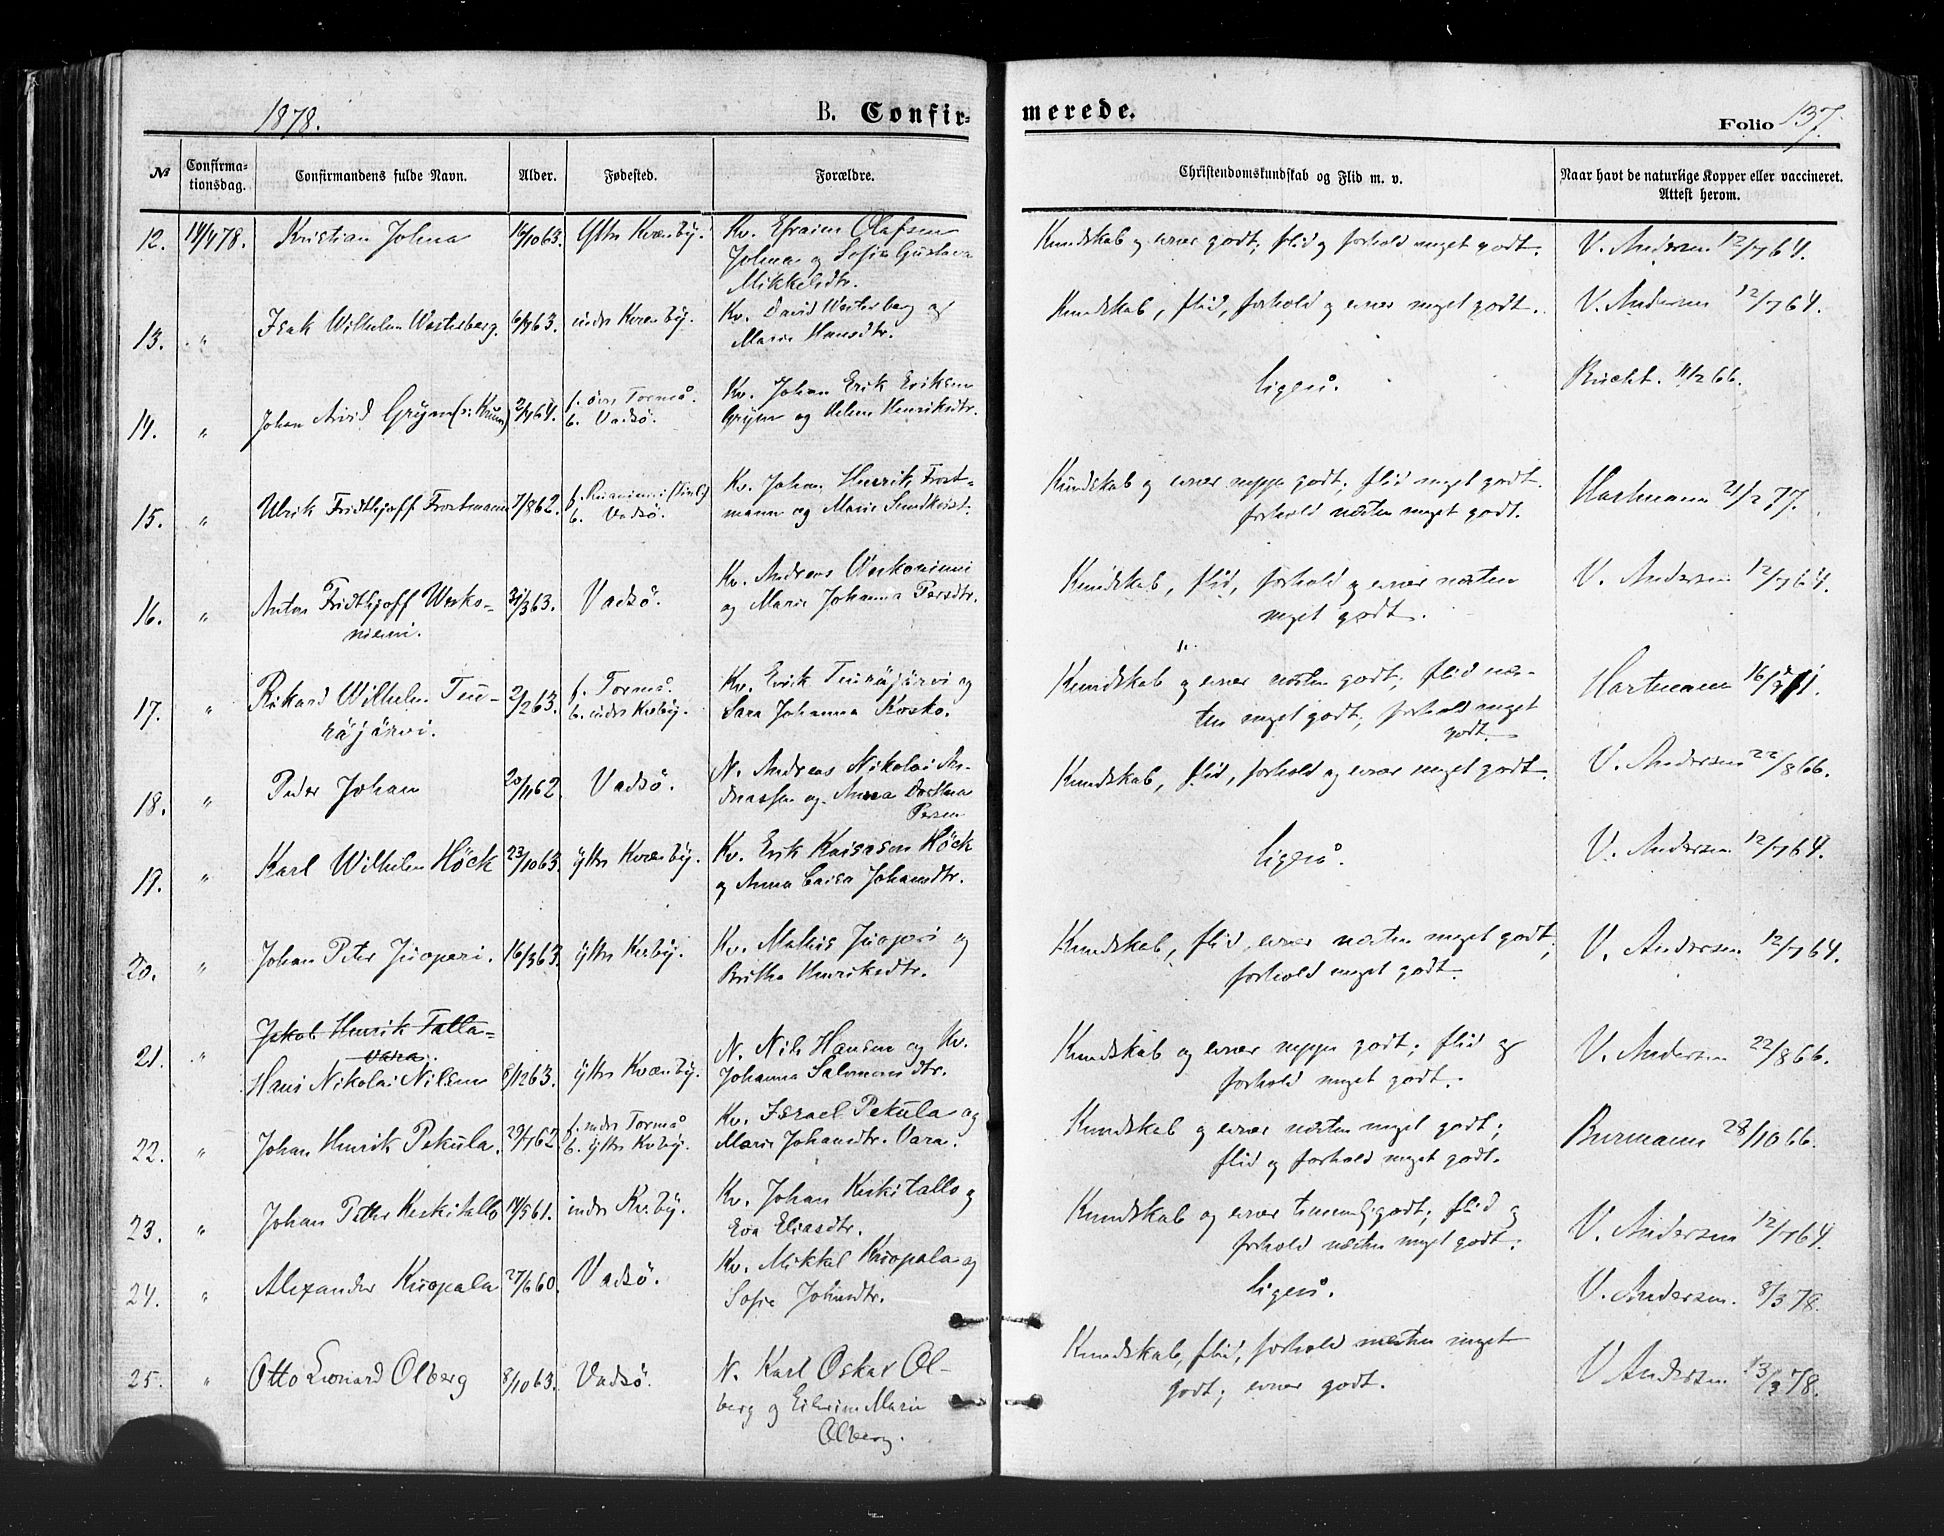 1878.
B. Confir-
merede.
Folio 137.
№
Confirma-
tionsdag.
Confirmandens fulde Navn.
Alder.
Fødested.
Forældre.
Christendomskundskab og Flid m. v.
Naar havt de naturlige Kopper eller vaccineret.
Attest herom.
12. 14/478. Kristian Johna 16/1063. Yttre Kvænby. Kv. Efraim Olafsen
Johna og Sofia Gustava
Mikkelsdtr.
Kundskab og evner godt, flid og forhold meget godt. V. Andersen 12/764.
13. " Isak Wilhelm Westerberg. 6/763. indre Kvænby. Kv. David Westerberg og
Marie Hansdtr.
Kundskab, flid, forhold og evner meget godt. V. Andersen 12/764.
14. " Johan Arvid Grÿm 2/764. f. övre Torneå.
b. Vadsö.
Kv. Johan Erik Eriksen
Grÿm og Helena Henriksdtr.
ligeså. Bucht. 11/266.
15. " Ulrik Fridthjoff Frostmann 7/862.
b. Vadsö.
Kv. Johan Henrik Frost-
mann og Marie Sundkvist.
Kundskab og evner neppe godt; flid meget godt.
forhold næsten meget godt.
Hartmann 21/277.
16. " Anton Fridthjoff Wesko-
niemi.
31/363. Vadsö. Kv. Andreas Weskoniemi
og Marie Johanna Persdtr.
Kundskab, flid, forhold og evner næsten
meget godt.
V. Andersen 12/764.
17. " Rikard Wilhelm Teu-
räjärvi.
2/263. f. Torneå.
b. indre Kvby.
Kv. Erik Teuräjärvi og
Sara Johanna Kosko.
Kundskab og evner næsten godt; flid næs-
ten meget godt; forhold meget
godt.
Hartmann
18. " Peder Johan 20/1162. Vadsö. N. Andreas Nikolai An-
dreassen og Anna Dorthea
Persen
Kundskab, flid, forhold og evner meget godt. V. Andersen 22/866.
19. " Karl Wilhelm Höck 23/1063. ÿttre Kvænby. Kv. Erik Kaisason Höck
og Anna Caisa Johansdtr.
ligeså. V. Andersen 12/764.
20. " Johan Peter Juoperi. 16/363. ÿttre Kvby. Kv. Matis Juoperi og
Britha Henriksdtr.
Kundskab, flid, evner næsten meget godt;
forhold meget godt.
V. Andersen 12/764.
21. " Jakob Henrik Talla-
vara.
Hans Nikolai Nilsen 8/1263. ÿttre Kvænby. N. Nils Hansen og Kv.
Johanna Salomonsdtr.
Kundskab og evner neppe godt; flid og
forhold meget godt.
V. Andersen 22/866.
22. " Johan Henrik Pekula. 29/762. f. nedre Torneå
b. ÿttre Kvby.
Kv. Israel Pekula og
Marie Johansdtr. Vara.
Kundskab og evner næsten meget godt;
flid og forhold meget godt.
Burmann 28/1066.
23. " Johan Petter Keskitallo 14/561. indre Kvby. Kv. Johan Keskitallo og
Eva Eliasdtr.
Kundskab og evner temmelig godt; flid og
forhold næsten meget godt.
V. Andersen 12/764.
24. " Alexander Kuopala 27/660. Vadsö. Kv. Mikkel Kuopala og
Sofie Johansdtr.
ligeså. V. Andersen. 8/378.
25. " Otto Leonard Olberg 8/1063. Vadsö. N. Karl Oskar Ol-
berg og Marie
Olberg.
Kundskab, flid, forhold næsten meget
godt; evner godt.
V Andersen 13/378.